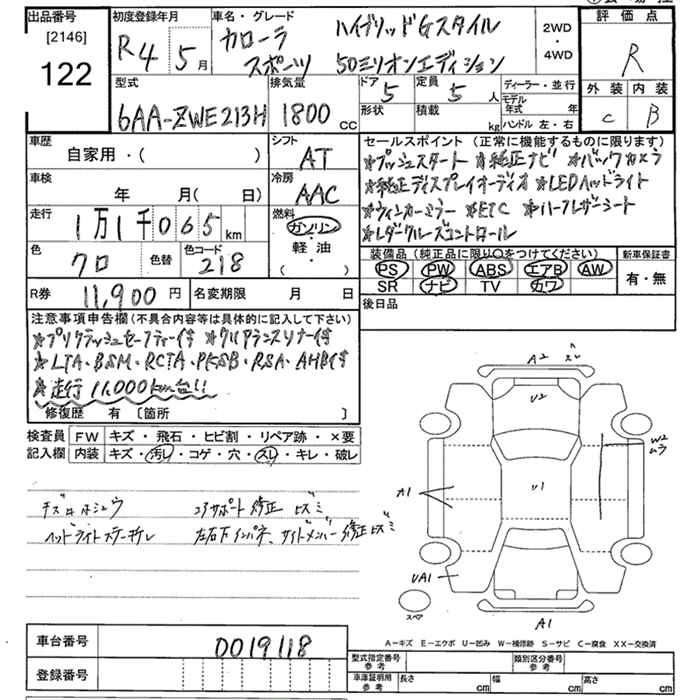 出品番号
[2146]
122
初度登録年月
R4 5月
車名・グレード
カローラ ハイブリッドGスタイル
スポーツ 50ミリオンエディション
2WD
・
4WD
評価点
R
外装 内装
C B
型式
6AA-ZWE213H
排気量
1800 cc
ドア 5
形状
定員 5 人
積載 kg
ディーラー・並行
モデル年式 年
ハンドル 左・右
車歴
自家用・( )
シフト
AT
車検
年 月( 日)
冷房
AAC
走行
1万1千065 km
燃料
ガソリン
・
軽・油
・
色
クロ
色替
色コード
218
R券 11,900 円
名変期限 月 日
セールスポイント (正常に機能するものに限ります)
★プッシュスタート ★純正ナビ ★バックカメラ
★純正ディスプレイオーディオ ★LEDヘッドライト
★ウィンカーミラー ★ETC ★ハーフレザーシート
★レダークルーズコントロール
装備品(純正品に限り○をつけてください)
PS PW ABS エアB AW
SR ナビ TV カワ
新車保証書
有・無
後日品
注意事項申告欄(不具合内容等は具体的に記入して下さい)
★プリクラッシュセーフティー付 ★クリアランスソナー付
★LTA・BSM・RCTA・PKSB・RSA・AHB付
★走行11,000km台!!
修復歴 有 〔箇所 〕
検査員記入欄
FW キズ・飛石・ヒビ割・リペア跡・×要
内装 キズ・汚レ・コゲ・穴・スレ・キレ・破レ
コアサポート修正 ヒズミ
ヘッドライトステー折レ 左右下インパネ、サイドメンバー修正ヒズミ
A2 スレ
U2
W2
ムラ
A1
U1
UA1
A1
スペア
A－キズ E－エクボ U－凹み W－補修跡 S－サビ C－腐食 XX－交換済
車台番号 0019118
登録番号
型式指定番号 参考
類別区分番号 参考
車庫証明用 参考
長さ cm
幅 cm
高さ cm